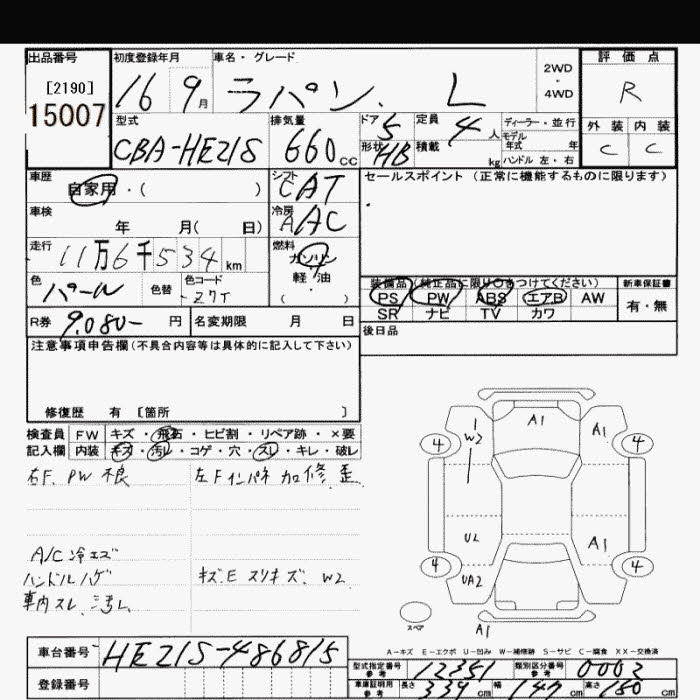 出品番号 初度登録年月 車名・グレード 2WD・4WD 評価点
[2190] 16 9月 ラパン. L R
15007
型式 排気量 ドア 定員 ディーラー・並行 外装 内装
CBA-HE21S 660cc 5 4人 モデル年式 年 C C
形状 HB 積載 kg ハンドル 左・右
車歴 シフト セールスポイント(正常に機能するものに限ります)
自家用・( ) CAT
車検 冷房
年 月( 日) AAC
走行 燃料
11万6千534km ガソリン
色 色替 色コード 軽油
パール Z7T ( )
装備品(純正品に限り○をつけてください) 新車保証書
PS PW ABS エアB AW 有・無
SR ナビ TV カワ
R券 9.080- 円 名変期限 月 日 後日品
注意事項申告欄(不具合内容等は具体的に記入して下さい)
修復歴 有 [箇所 ]
検査員 FW キズ・飛石・ヒビ割・リペア跡・×要
記入欄 内装 キズ・汚レ・コゲ・穴・スレ・キレ・破レ
右F. PW 不良 左Fインパネ 加修 歪
A/C 冷エズ
ハンドルハゲ キズE スリキズ. W2
車内スレ 汚レ
A1
1 W2 A1
4 4
UL A1
4 UA2 4
スペア A1
A-キズ E-エクボ U-凹み W-補修跡 S-サビ C-腐食 XX-交換済
車台番号 HE21S-486815
登録番号
型式指定番号 参考 12351 類別区分番号 参考 0002
車庫証明用 参考 長さ 339cm 幅 147cm 高さ 150cm